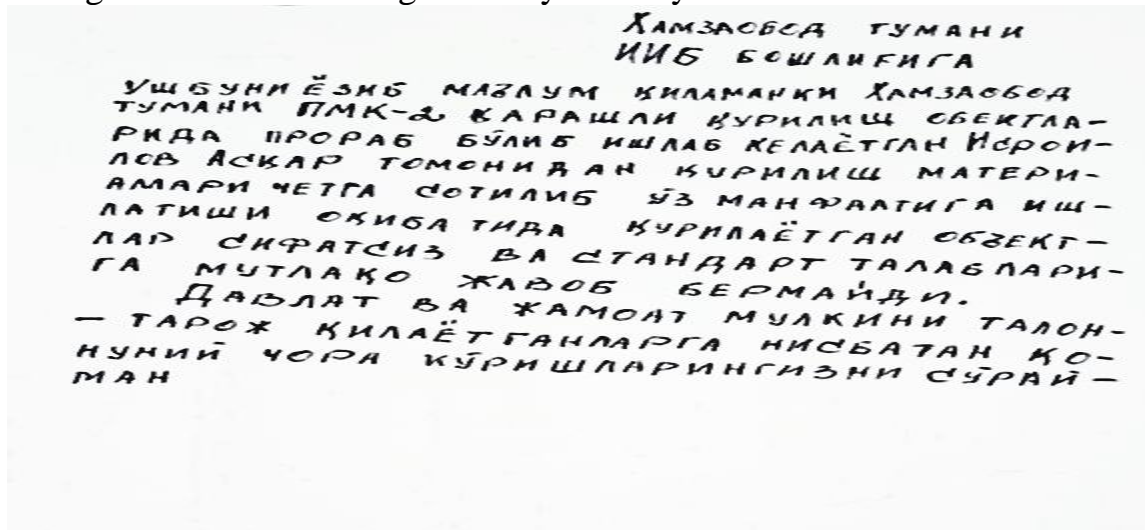 Хамзаобод тумани
ИИБ бошлиғига
Ушбуни ёзиб маълум қиламанки Хамзаобод
тумани ПМК-2 қарашли қурилиш обектла-
рида прораб бўлиб ишлаб келаётган Исрои-
лов Асқар томонидан қурилиш матери-
амари четга сотилиб ўз манфаатига иш-
латиши оқибатида қурилаётган объект-
лар сифатсиз ва стандарт талаблари-
га мутлақо жавоб бермайди.
Давлат ва жамоат мулкини талон-
– тарож қилаётганларга нисбатан қо-
нуний чора кўришларингизни сўрай-
ман